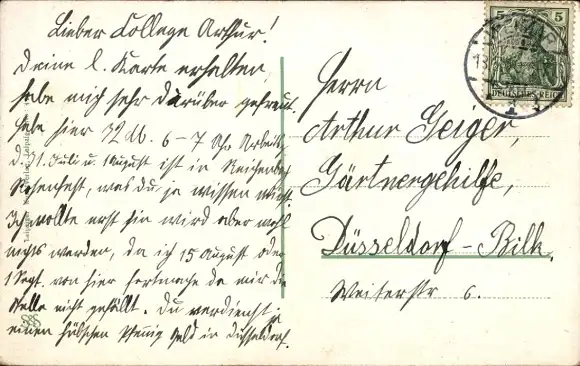 Lieber College Arthur!
Deine l. Karte erhalten,
habe mich sehr darüber gefreut.
Habe hier 72 M. 6-7 Uhr Arbeits
d. 31. Juli u. 1 August ist in Reichenba
Rosenfest, was du ja wissen wirst.
Ich wollte erst hin wird aber wohl
nichts werden, da ich 15 August oder
1 Sept. von hier fortmache da mir die
Stelle nicht gefällt. Du verdienst ja
einen hübschen Pfennig Geld in Düsseldorf.
Herrn
Arthur Geiger,
Gärtnergehilfe,
Düsseldorf-Bilk.
Weiterstr 6.
5 5
DEUTSCHES REICH